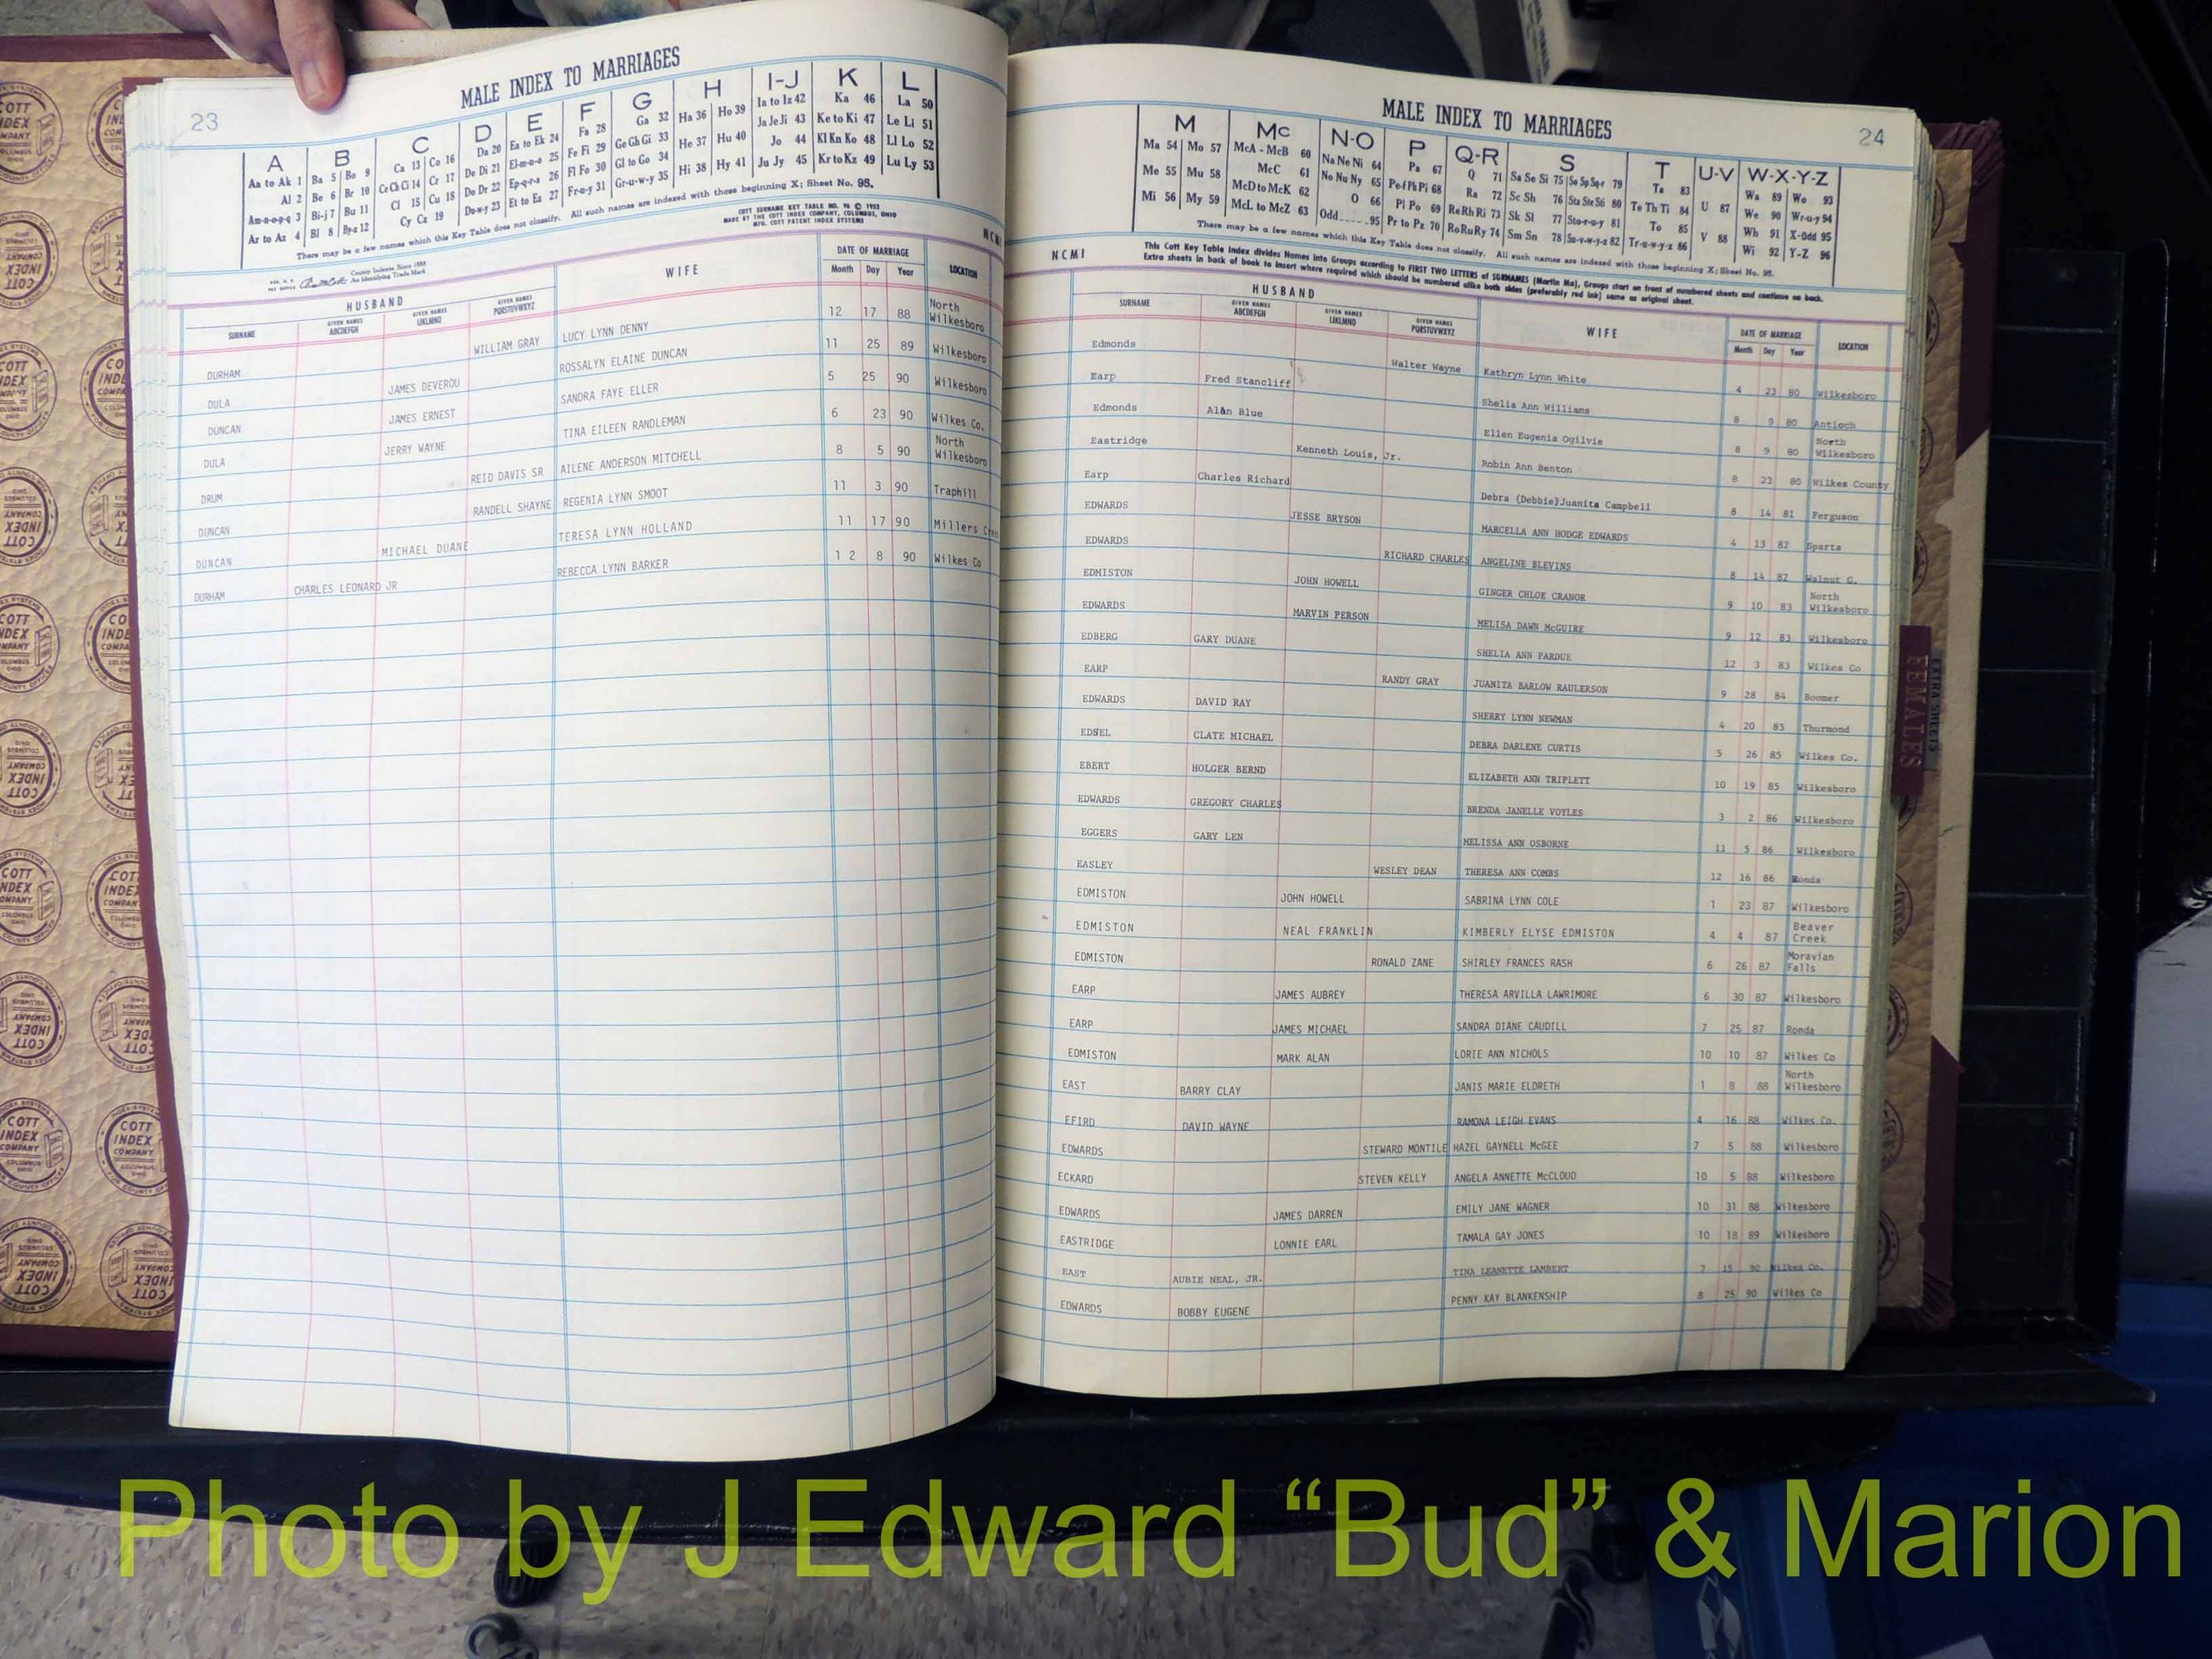 23
MALE INDEX TO MARRIAGES
A B C D E F G H I-J K L
Aa to Ak 1 Ba 5 Bo 9 Ca 13 Co 16 Da 20 Ea to Ek 24 Fa 28 Ga 32 Ha 36 Ho 39 Ia to Iz 42 Ka 46 La 50
Al 2 Be 6 Br 10 Ce Ch Ci 14 Cr 17 De Di 21 El-m-n-o 25 Fe Fi 29 Ge Gh Gi 33 He 37 Hu 40 Ja Je Ji 43 Ke to Ki 47 Le Li 51
Am-n-o-p-q 3 Bi-j 7 Bu 11 Cl 15 Cu 18 Do Dr 22 Ep-q-r-s 26 Fl Fo 30 Gl to Go 34 Hi 38 Hy 41 Jo 44 Kl Kn Ko 48 Ll Lo 52
Ar to Az 4 Bl 8 By-z 12 Cy Cz 19 Du-w-y 23 Et to Ez 27 Fr-u-y 31 Gr-u-w-y 35 Ju Jy 45 Kr to Kz 49 Lu Ly 53
There may be a few names which this Key Table does not classify. All such names are indexed with those beginning X; Sheet No. 95.
COTT SURNAME KEY TABLE NO. 96 © 1952
MADE BY THE COTT INDEX COMPANY, COLUMBUS, OHIO
MFG. COTT PATENT INDEX SYSTEMS
County Indexes Since 1888
An Identifying Trade Mark
HUSBAND WIFE DATE OF MARRIAGE LOCATION
SURNAME GIVEN NAMES ABCDEFGH GIVEN NAMES IJKLMNO GIVEN NAMES PQRSTUVWXYZ Month Day Year
DURHAM WILLIAM GRAY LUCY LYNN DENNY 12 17 88 North Wilkesboro
DULA JAMES DEVEROU ROSSALYN ELAINE DUNCAN 11 25 89 Wilkesboro
DUNCAN JAMES ERNEST SANDRA FAYE ELLER 5 25 90 Wilkesboro
DULA JERRY WAYNE TINA EILEEN RANDLEMAN 6 23 90 Wilkes Co.
DRUM REID DAVIS SR AILENE ANDERSON MITCHELL 8 5 90 North Wilkesboro
DUNCAN RANDELL SHAYNE REGENIA LYNN SMOOT 11 3 90 Traphill
DUNCAN MICHAEL DUANE TERESA LYNN HOLLAND 11 17 90 Millers
DURHAM CHARLES LEONARD JR REBECCA LYNN BARKER 12 8 90 Wilkes Co
24
MALE INDEX TO MARRIAGES
M Mc N-O P Q-R S T U-V W-X-Y-Z
Ma 54 Mo 57 McA - McB 60 Na Ne Ni 64 Pa 67 Q 71 Sa Se Si 75 So Sp Sq-r 79 Ta 83 Wa 89 Wo 93
Me 55 Mu 58 McC 61 No Nu Ny 65 Pe-f Ph Pi 68 Ra 72 Sc Sh 76 Sta Ste Sti 80 Te Th Ti 84 U 87 We 90 Wr-u-y 94
Mi 56 My 59 McD to McK 62 O 66 Pl Po 69 Re Rh Ri 73 Sk Sl 77 Sto-r-u-y 81 To 85 Wh 91 X-Odd 95
McL to McZ 63 Odd 95 Pr to Pz 70 Ro Ru Ry 74 Sm Sn 78 Su-v-w-y-z 82 Tr-u-w-y-z 86 V 88 Wi 92 Y-Z 96
There may be a few names which this Key Table does not classify. All such names are indexed with those beginning X; Sheet No. 95.
NCMI
This Cott Key Table Index divides Names into Groups according to FIRST TWO LETTERS of SURNAMES (Martin Ma), Groups start on front of numbered sheets and continue on back.
Extra sheets in back of book to insert where required which should be numbered alike both sides (preferably red ink) same as original sheet.
HUSBAND WIFE DATE OF MARRIAGE LOCATION
SURNAME GIVEN NAMES ABCDEFGH GIVEN NAMES IJKLMNO GIVEN NAMES PQRSTUVWXYZ Month Day Year
Edmonds Walter Wayne Kathryn Lynn White 4 23 80 Wilkesboro
Earp Fred Stancliff Shelia Ann Williams 8 9 80 Antioch
Edmonds Alan Blue Ellen Eugenia Ogilvie 8 9 80 North Wilkesboro
Eastridge Kenneth Louis, Jr. Robin Ann Benton 8 23 80 Wilkes County
Earp Charles Richard Debra (Debbie)Juanita Campbell 8 14 81 Ferguson
EDWARDS JESSE BRYSON MARCELLA ANN HODGE EDWARDS 4 13 82 Sparta
EDWARDS RICHARD CHARLES ANGELINE BLEVINS 8 14 82 Walnut G.
EDMISTON JOHN HOWELL GINGER CHLOE CRANOR 9 10 83 North Wilkesboro
EDWARDS MARVIN PERSON MELISA DAWN McGUIRE 9 12 83 Wilkesboro
EDBERG GARY DUANE SHELIA ANN PARDUE 12 3 83 Wilkes Co
EARP RANDY GRAY JUANITA BARLOW RAULERSON 9 28 84 Boomer
EDWARDS DAVID RAY SHERRY LYNN NEWMAN 4 20 85 Thurmond
EDSEL CLATE MICHAEL DEBRA DARLENE CURTIS 5 26 85 Wilkes Co.
EBERT HOLGER BERND ELIZABETH ANN TRIPLETT 10 19 85 Wilkesboro
EDWARDS GREGORY CHARLES BRENDA JANELLE VOYLES 3 2 86 Wilkesboro
EGGERS GARY LEN MELISSA ANN OSBORNE 11 5 86 Wilkesboro
EASLEY WESLEY DEAN THERESA ANN COMBS 12 16 86 Ronda
EDMISTON JOHN HOWELL SABRINA LYNN COLE 1 23 87 Wilkesboro
EDMISTON NEAL FRANKLIN KIMBERLY ELYSE EDMISTON 4 4 87 Beaver Creek
EDMISTON RONALD ZANE SHIRLEY FRANCES RASH 6 26 87 Moravian Falls
EARP JAMES AUBREY THERESA ARVILLA LAWRIMORE 6 30 87 Wilkesboro
EARP JAMES MICHAEL SANDRA DIANE CAUDILL 7 25 87 Ronda
EDMISTON MARK ALAN LORIE ANN NICHOLS 10 10 87 Wilkes Co
EAST BARRY CLAY JANIS MARIE ELDRETH 1 8 88 North Wilkesboro
EFIRD DAVID WAYNE RAMONA LEIGH EVANS 4 16 88 Wilkes Co.
EDWARDS STEWARD MONTILE HAZEL GAYNELL McGEE 7 5 88 Wilkesboro
ECKARD STEVEN KELLY ANGELA ANNETTE McCLOUD 10 5 88 Wilkesboro
EDWARDS JAMES DARREN EMILY JANE WAGNER 10 31 88 Wilkesboro
EASTRIDGE LONNIE EARL TAMALA GAY JONES 10 18 89 Wilkesboro
EAST AUBIE NEAL, JR. TINA LEANETTE LAMBERT 7 15 90 Wilkes Co.
EDWARDS BOBBY EUGENE PENNY KAY BLANKENSHIP 8 25 90 Wilkes Co
EXTRA SHEETS
FEMALES
COTT INDEX COMPANY
COLUMBUS OHIO
Photo by J Edward “Bud” & Marion